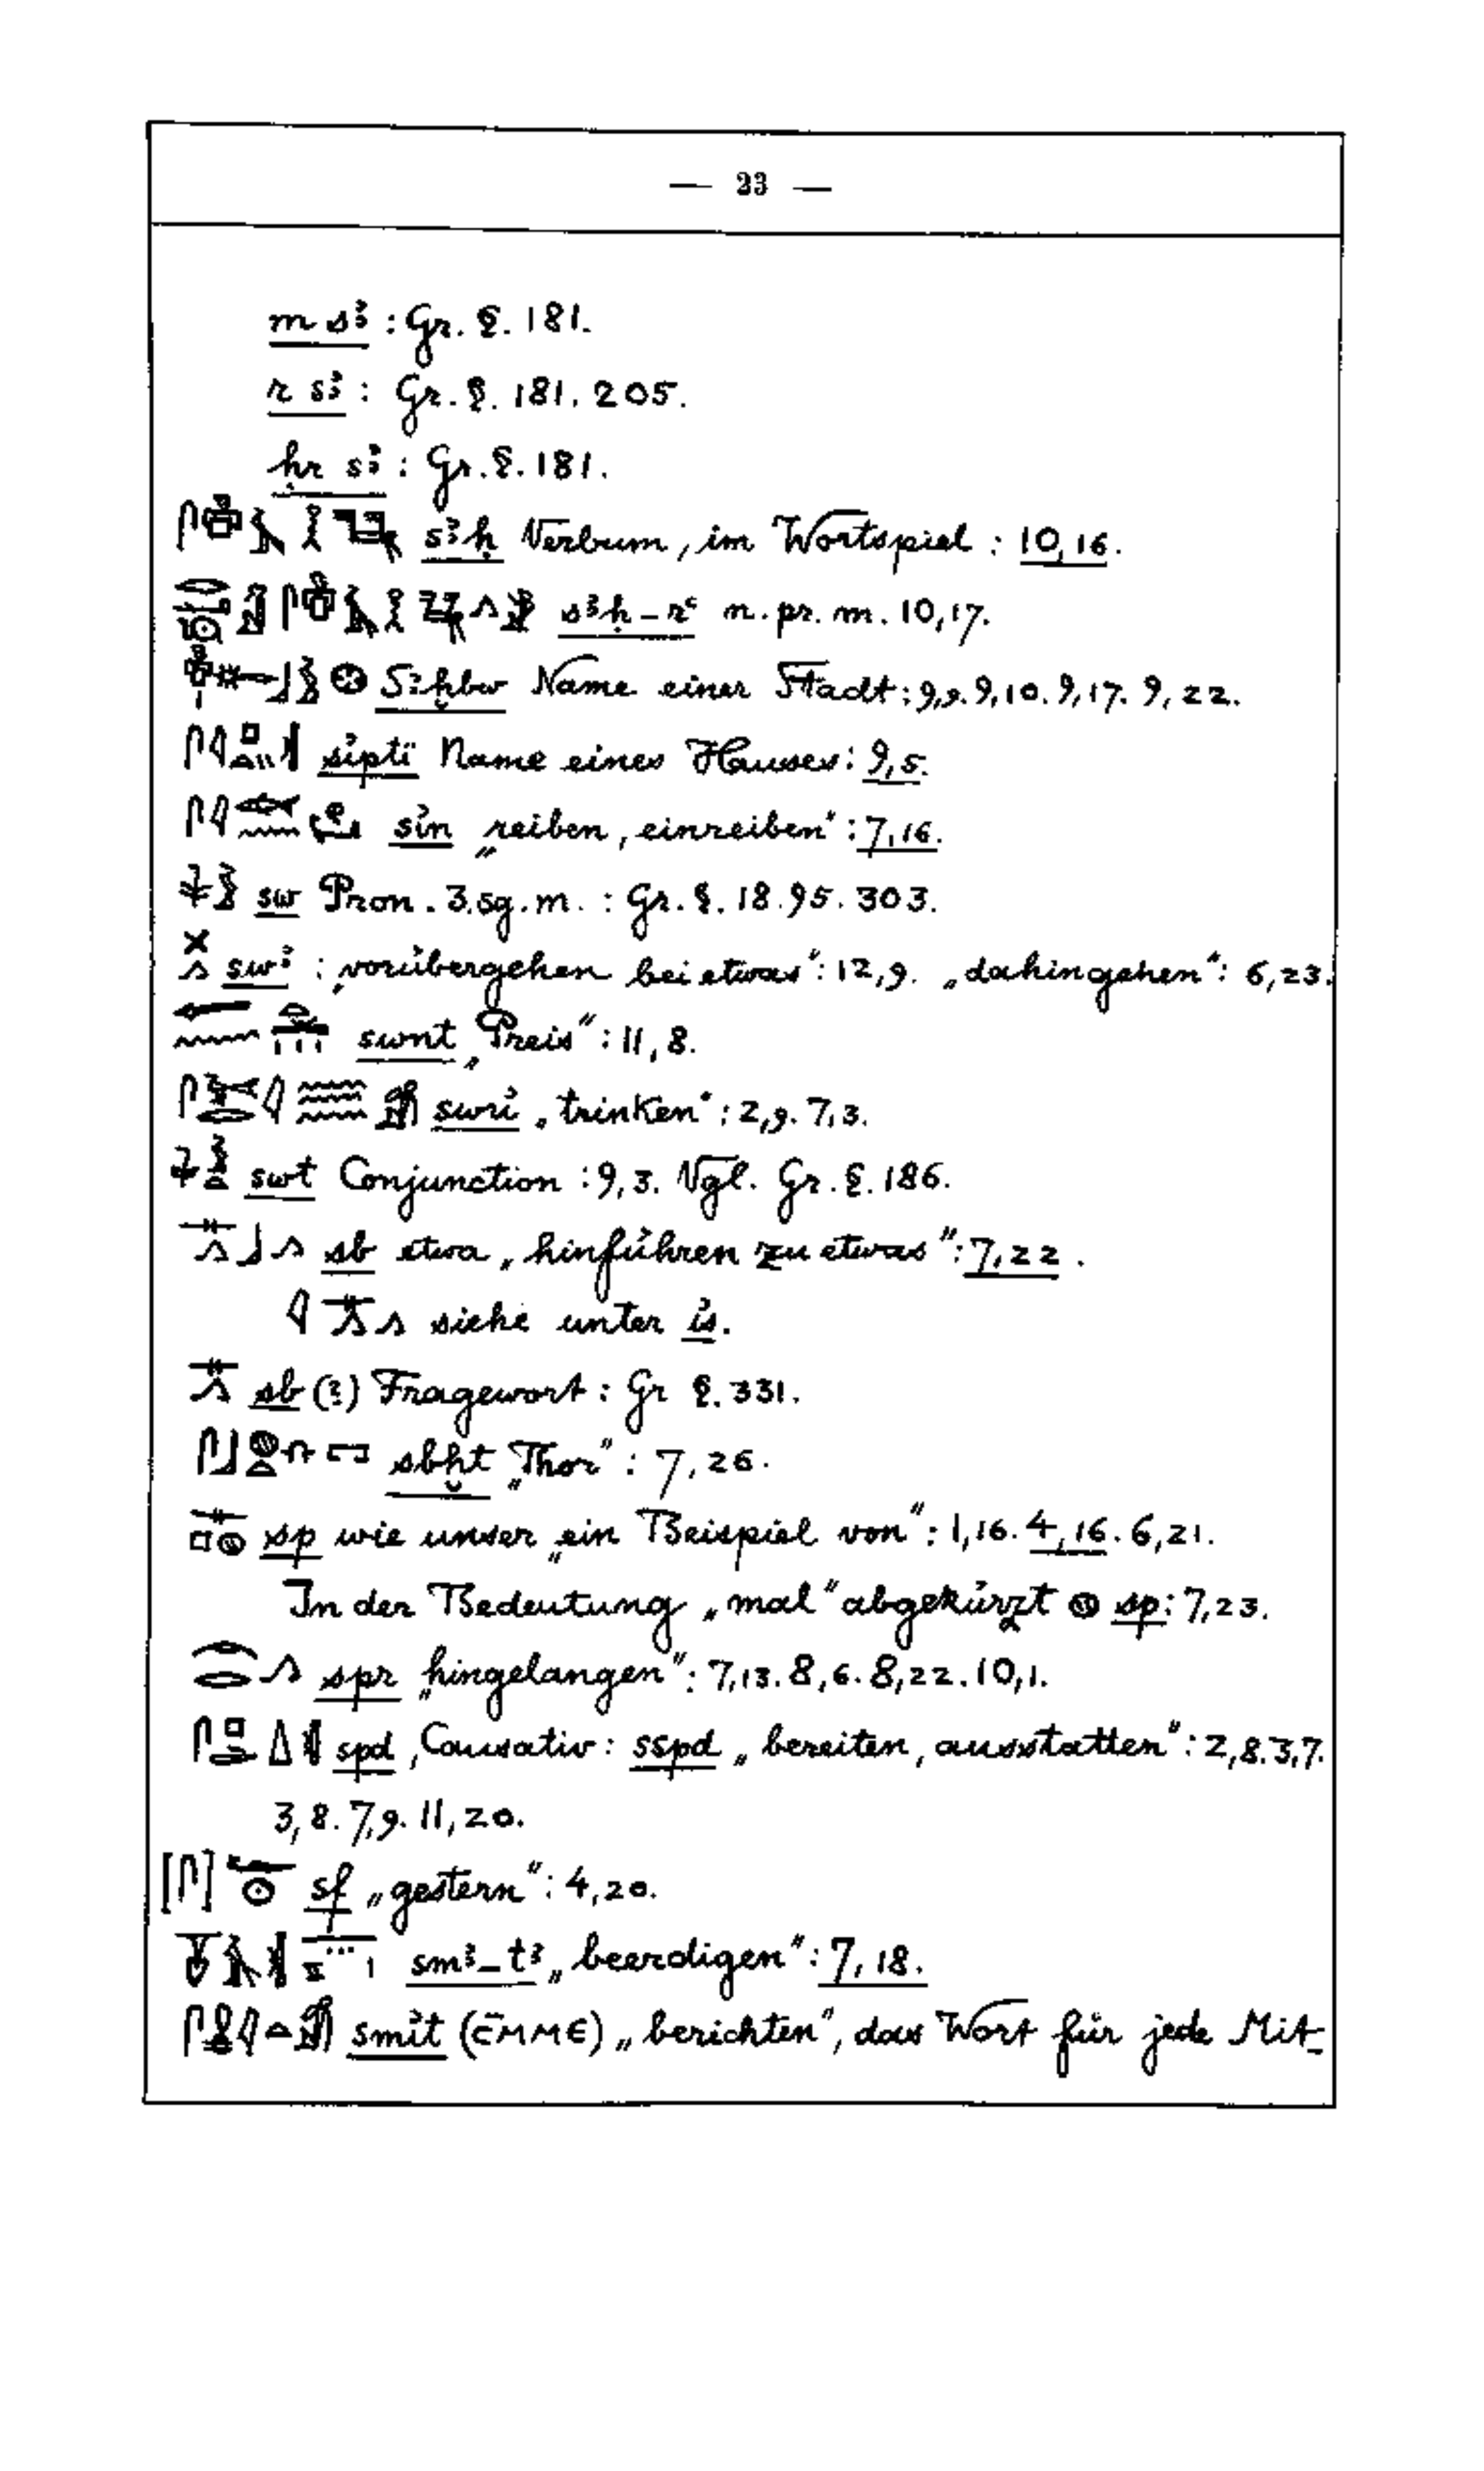 — 23 —
m sꜣ : Gr. §. 181.
r sꜣ : Gr. §. 181. 205.
ḥr sꜣ : Gr. §. 181.
sꜣḥ Verbum, im Wortspiel : 10,16.
sꜣḥ-rꜥ n. pr. m. 10,17.
Sꜣḫbw Name einer Stadt : 9,9. 9,10. 9,17. 9,22.
si̓ptï Name eines Hauses : 9,5.
si̓n „reiben, einreiben“ : 7,16.
sw Pron. 3. sg. m. : Gr. §. 18. 95. 303.
swꜣ : „vorübergehen bei etwas“ : 12,9. „dahingehen“ : 6,23.
swnt „Preis“ : 11,8.
swri̓ „trinken“ : 2,9. 7,3.
swt Conjunction : 9,3. Vgl. Gr. §. 186.
sb etwa „hinführen zu etwas“ : 7,22.
siehe unter i̓s.
sb (?) Fragewort : Gr §. 331.
sbḫt „Thor“ : 7,26.
sp wie unser „ein Beispiel von“ : 1,16. 4,16. 6,21.
In der Bedeutung „mal“ abgekürzt 𓊗 sp : 7,23.
spr „hingelangen“ : 7,13. 8,6. 8,22. 10,1.
spd, Causativ : sspd „bereiten, ausstatten“ : 2,8. 3,7.
3,8. 7,9. 11,20.
sf „gestern“ : 4,20.
smꜣ-tꜣ „beerdigen“ : 7,18.
smi̓t (ⲤⲘⲘⲈ) „berichten“, das Wort für jede Mit-